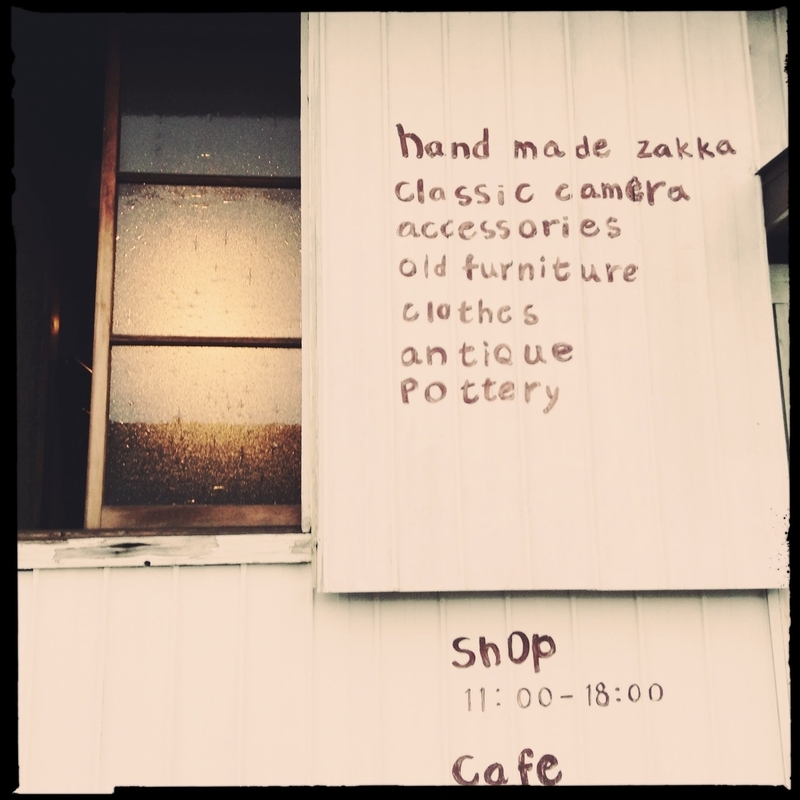 hand made zakka
classic camera
accessories
old furniture
clothes
antique
Pottery
Shop
11:00-18:00
Cafe